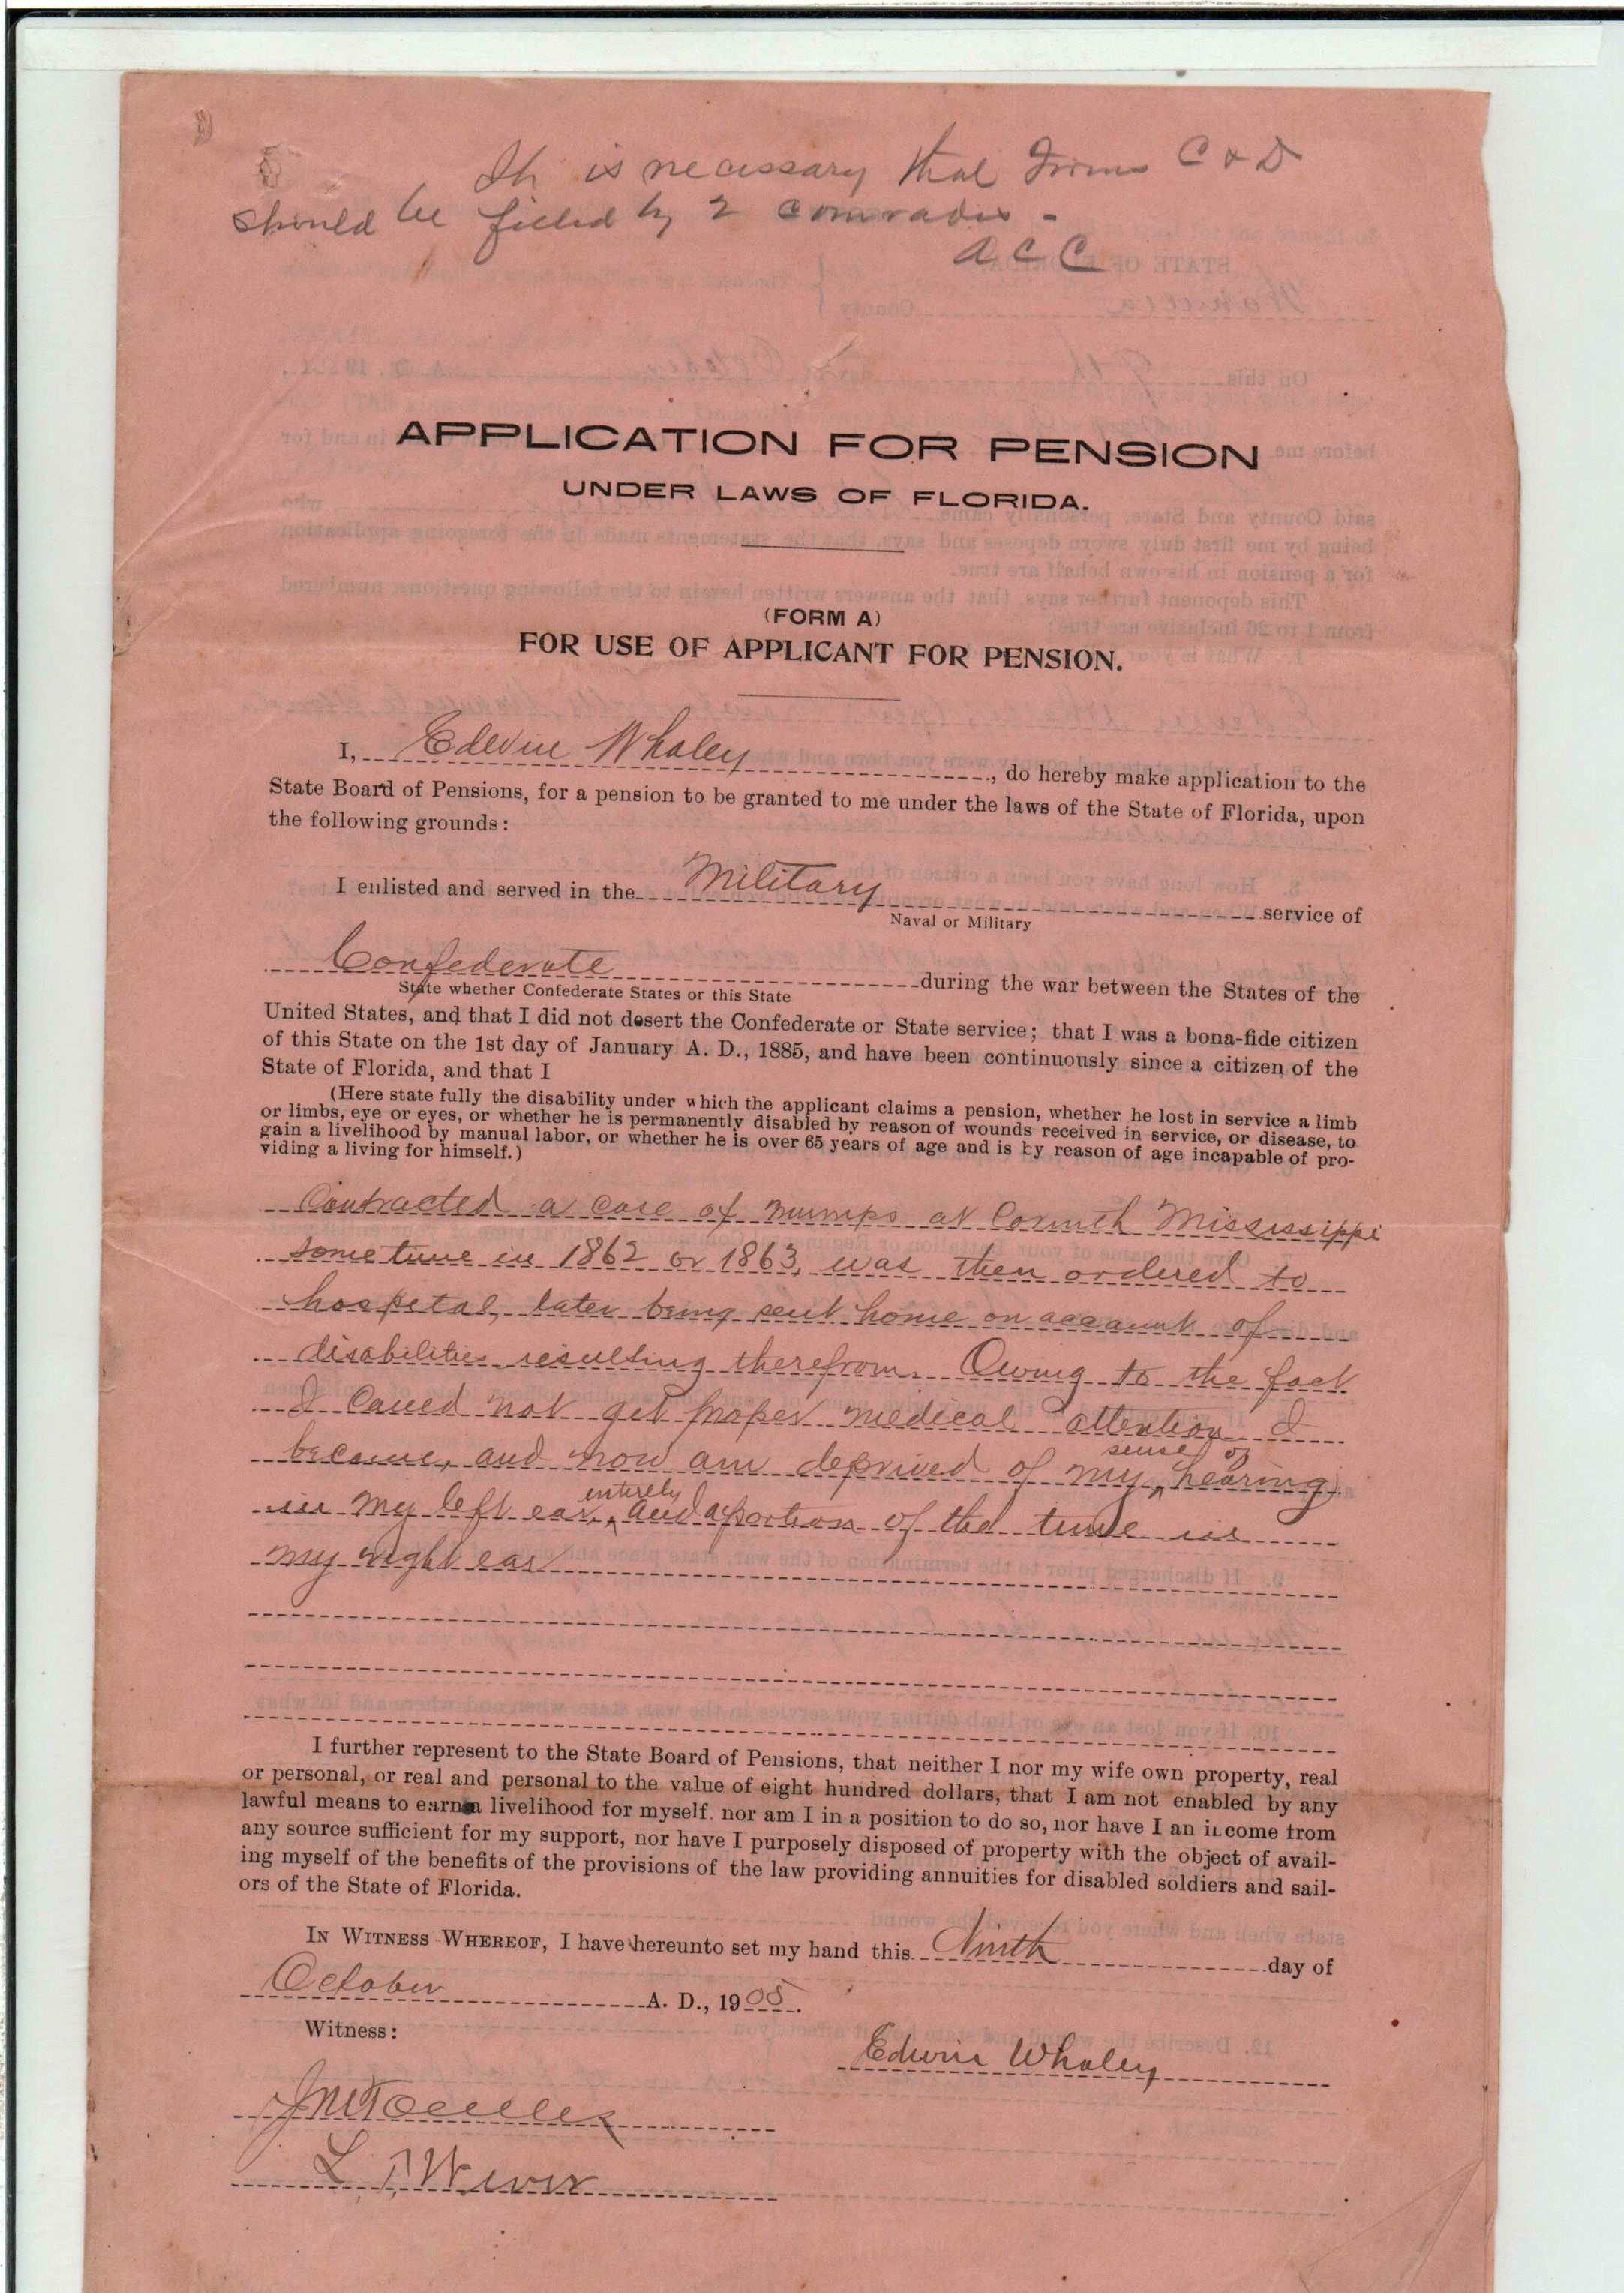 It is necessary that Forms C & D
should be filled by 2 comrades -
A C C
APPLICATION FOR PENSION
UNDER LAWS OF FLORIDA.
(FORM A)
FOR USE OF APPLICANT FOR PENSION.
I, Edwin Whaley, do hereby make application to the
State Board of Pensions, for a pension to be granted to me under the laws of the State of Florida, upon
the following grounds:
I enlisted and served in the Military service of
Naval or Military
Confederate during the war between the States of the
State whether Confederate States or this State
United States, and that I did not desert the Confederate or State service; that I was a bona-fide citizen
of this State on the 1st day of January A. D., 1885, and have been continuously since a citizen of the
State of Florida, and that I
(Here state fully the disability under which the applicant claims a pension, whether he lost in service a limb
or limbs, eye or eyes, or whether he is permanently disabled by reason of wounds received in service, or disease, to
gain a livelihood by manual labor, or whether he is over 65 years of age and is by reason of age incapable of pro-
viding a living for himself.)
Contracted a case of mumps at Corinth Mississippi
sometime in 1862 or 1863, was then ordered to
hospital, later being sent home on account of
disabilities resulting therefrom. Owing to the fact
I could not get proper medical attention I
became, and now am deprived of my sense of hearing
in my left ear, entirely and a portion of the time in
my right ear
I further represent to the State Board of Pensions, that neither I nor my wife own property, real
or personal, or real and personal to the value of eight hundred dollars, that I am not enabled by any
lawful means to earn a livelihood for myself. nor am I in a position to do so, nor have I an income from
any source sufficient for my support, nor have I purposely disposed of property with the object of avail-
ing myself of the benefits of the provisions of the law providing annuities for disabled soldiers and sail-
ors of the State of Florida.
IN WITNESS WHEREOF, I have hereunto set my hand this Ninth day of
October A. D., 1905.
Witness:
Edwin Whaley